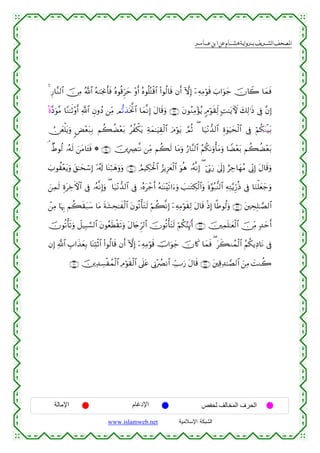 المصحف الشريف برواية هشام عن ابن عامر
فَمَا كَانَ جَوَابَ قَوْمِهِ إِلَّا أَن قَالُوا اقْتُلُوهُ أَوْ حَرِّقُوهُ فَأَنجَىٰهُ اللَّهُ مِنَ النَّارِ
إِنَّ فِي ذَٰلِكَ لَآيَٰتٍ لِّقَوْمٍ يُؤْمِنُونَ وَقَالَ إِنَّمَا اتَّخَذتُّم مِّن دُونِ اللَّهِ أَوْثَٰنًا مَّوَدَّةً
بَيْنَكُمْ فِي الْحَيَوٰةِ الدُّنْيَا ثُمَّ يَوْمَ الْقِيَٰمَةِ يَكْفُرُ بَعْضُكُم بِبَعْضٍ وَيَلْعَنُ
بَعْضُكُم بَعْضًا وَمَأْوَىٰكُمُ النَّارُ وَمَا لَكُم مِّن نَّٰصِرِينَ * فَـَٔامَنَ لَهُ لُوطٌ
وَقَالَ إِنِّي مُهَاجِرٌ إِلَىٰ رَبِّي إِنَّهُ هُوَ الْعَزِيزُ الْحَكِيمُ وَوَهَبْنَا لَهُ إِسْحَٰقَ وَيَعْقُوبَ
وَجَعَلْنَا فِي ذُرِّيَّتِهِ النُّبُوَّةَ وَالْكِتَٰبَ وَءَاتَيْنَٰهُ أَجْرَهُ فِي الدُّنْيَا وَإِنَّهُ فِي الْآخِرَةِ لَمِنَ
الصَّٰلِحِينَ وَلُوطًا إِذْ قَالَ لِقَوْمِهِ أَئِنَّكُمْ لَتَأْتُونَ الْفَٰحِشَةَ مَا سَبَقَكُم بِهَا مِنْ
أَحَدٍ مِّنَ الْعَٰلَمِينَ أَئِنَّكُمْ لَتَأْتُونَ الرِّجَالَ وَتَقْطَعُونَ السَّبِيلَ وَتَأْتُونَ
فِي نَادِيكُمُ الْمُنكَرَ فَمَا كَانَ جَوَابَ قَوْمِهِ إِلَّا أَن قَالُوا ائْتِنَا بِعَذَابِ اللَّهِ إِن
كُنتَ مِنَ الصَّٰدِقِينَ قَالَ رَبِّ انصُرْنِي عَلَى الْقَوْمِ الْمُفْسِدِينَ
الحرف المخالف لحفص الإدغام الإمالة
الشبكة الإسلامية www.islamweb.net